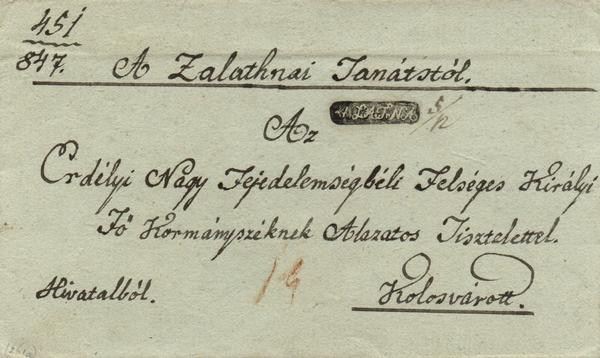 451
847. A Zalathnai Tanátstól.
ZALATNA 5/12
Az
Erdélyi Nagy Fejedelemségbéli Felséges Királyi
Fő Kormányszéknek Alazatos Tisztelettel.
Hivatalból.
Kolosvárott.